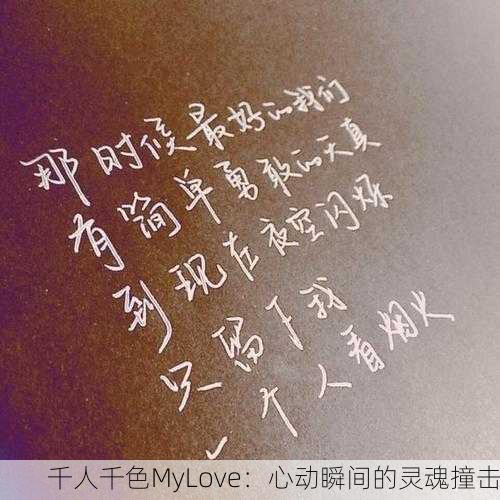 那时候最好的我们
有简单勇敢的天真
到现在夜空闪烁
只留下我
一个人看烟火
千人千色MyLove：心动瞬间的灵魂撞击